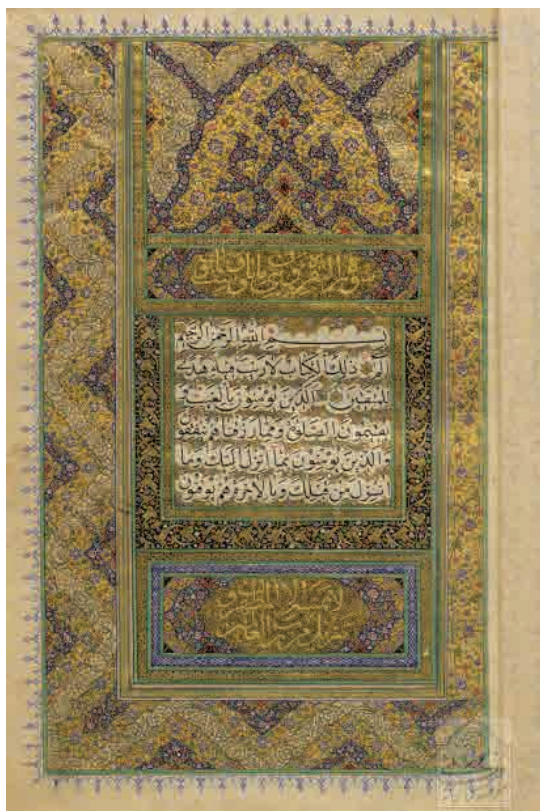 سورة البقرة
بسم الله الرحمن الرحيم
الم ذلك الكتاب لا ريب فيه هدى
للمتقين الذين يؤمنون بالغيب و
يقيمون الصلوة ومما رزقناهم ينفقون
والذين يؤمنون بما انزل اليك وما
انزل من قبلك وبالاخرة هم يوقنون
لا يمسه الا المطهرون
تنزيل من رب العالمين